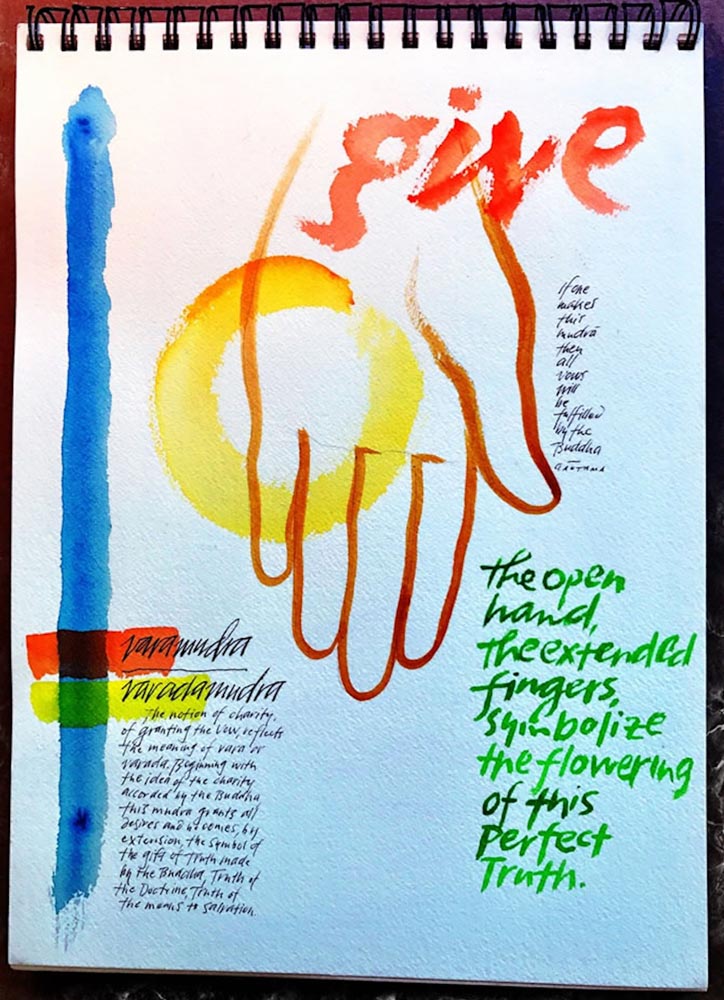 give
if one
makes
this
mudrā
then
all
vows
will
be
fulfilled
by the
Buddha
GAUTAMA
varamudra
varadamudra
The notion of charity,
of granting the vow, reflects
the meaning of vara or
varada. Beginning with
the idea of the charity
accorded by the Buddha
this mudra grants all
desires and becomes, by
extension, the symbol of
the gift of Truth made
by the Buddha, Truth of
the Doctrine, Truth of
the means to salvation.
the open
hand,
the extended
fingers,
symbolize
the flowering
of this
Perfect
Truth.